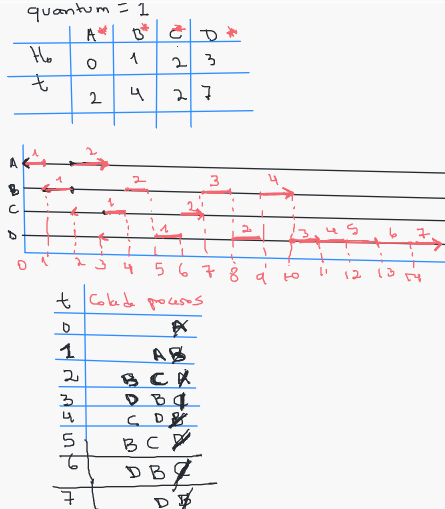 quantum = 1
A* B* C* D *
H₀ 0 1 2 3
t 2 4 2 7
1 2
A
1 2 3 4
B
1 2
C
1 2 3 4 5 6 7
D
0 1 2 3 4 5 6 7 8 9 10 11 12 13 14
t Cola de procesos
0 A
1 A B
2 B C A
3 D B C
4 C D B
5 B C D
6 D B C
7 D B